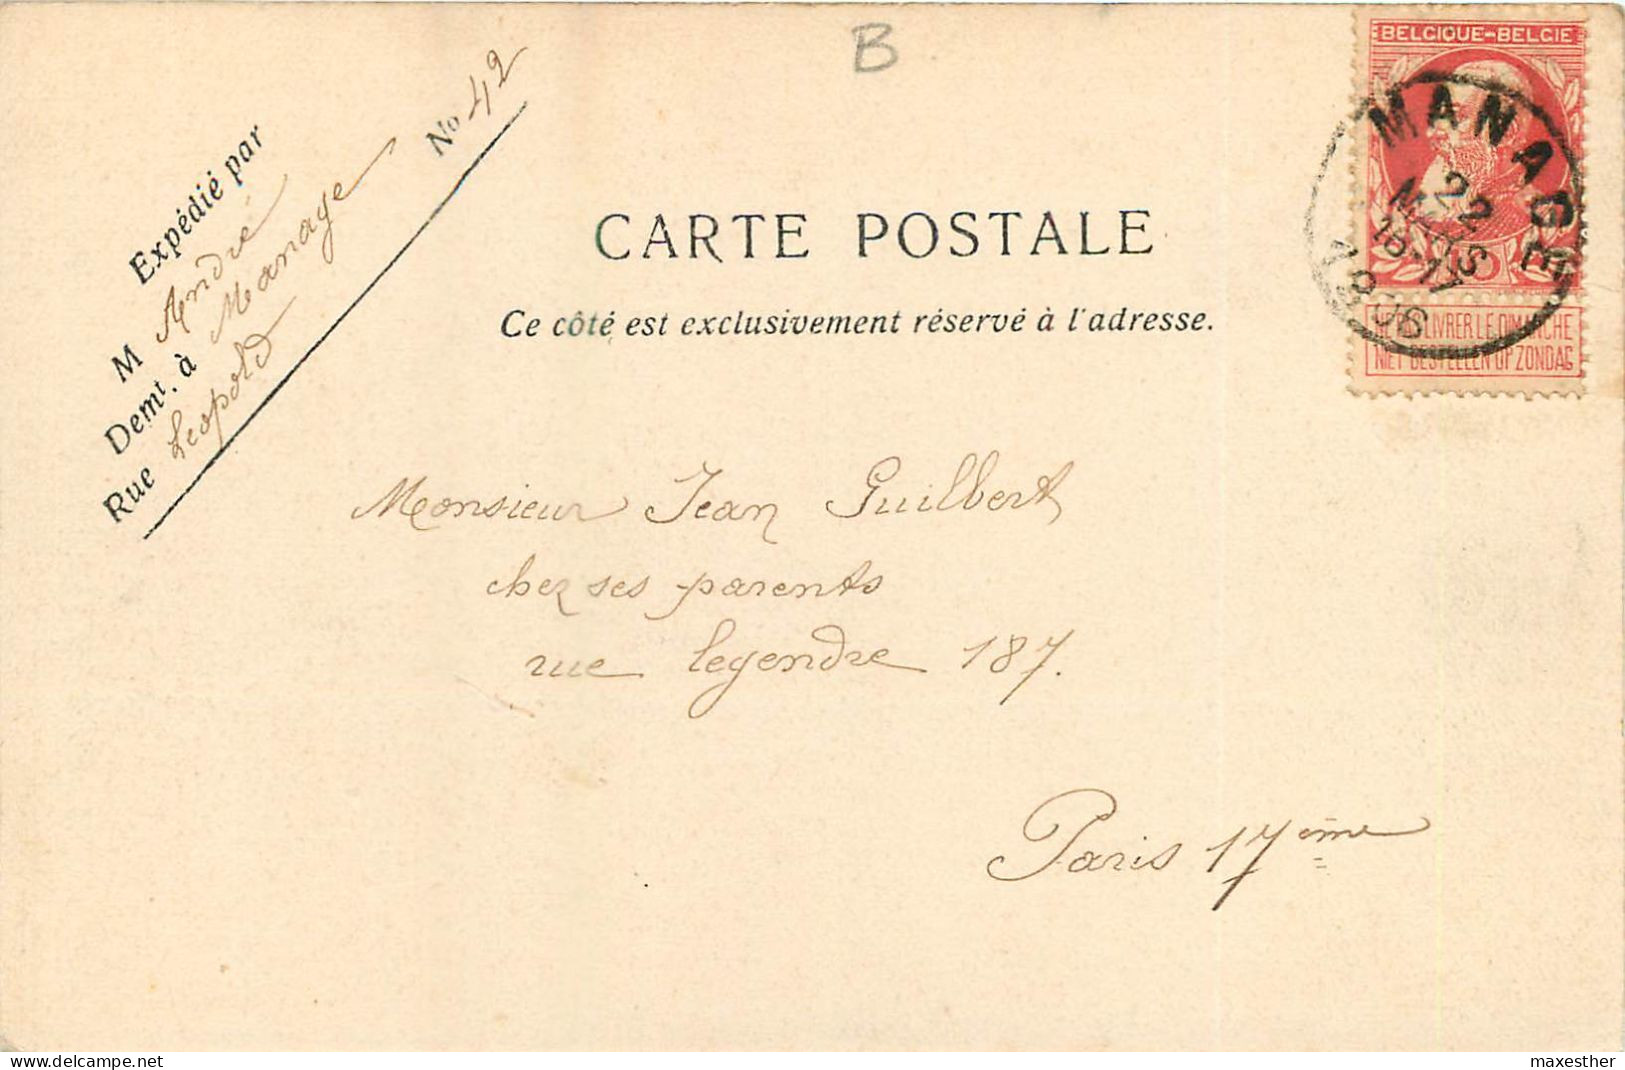 B
BELGIQUE-BELGIE
MANAGE
22
MARS
16-17
1906
LIVRER LE DIMANCHE
NIET BESTELLEN OP ZONDAG
Expédié par
M André
Demt. à Manage
Rue Leopold No 42
CARTE POSTALE
Ce côté est exclusivement réservé à l'adresse.
Monsieur Jean Guilbert
chez ses parents
rue legendre 187.
Paris 17ème
Delcampe.net
maxesther